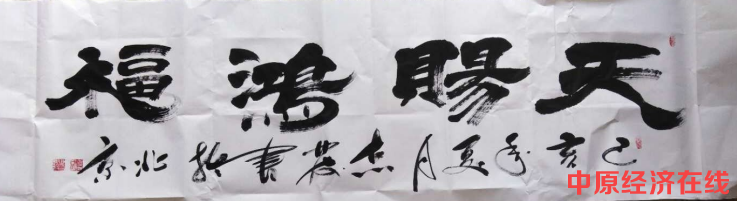 天賜鴻福
己亥年夏月農書於北京
中原经济在线